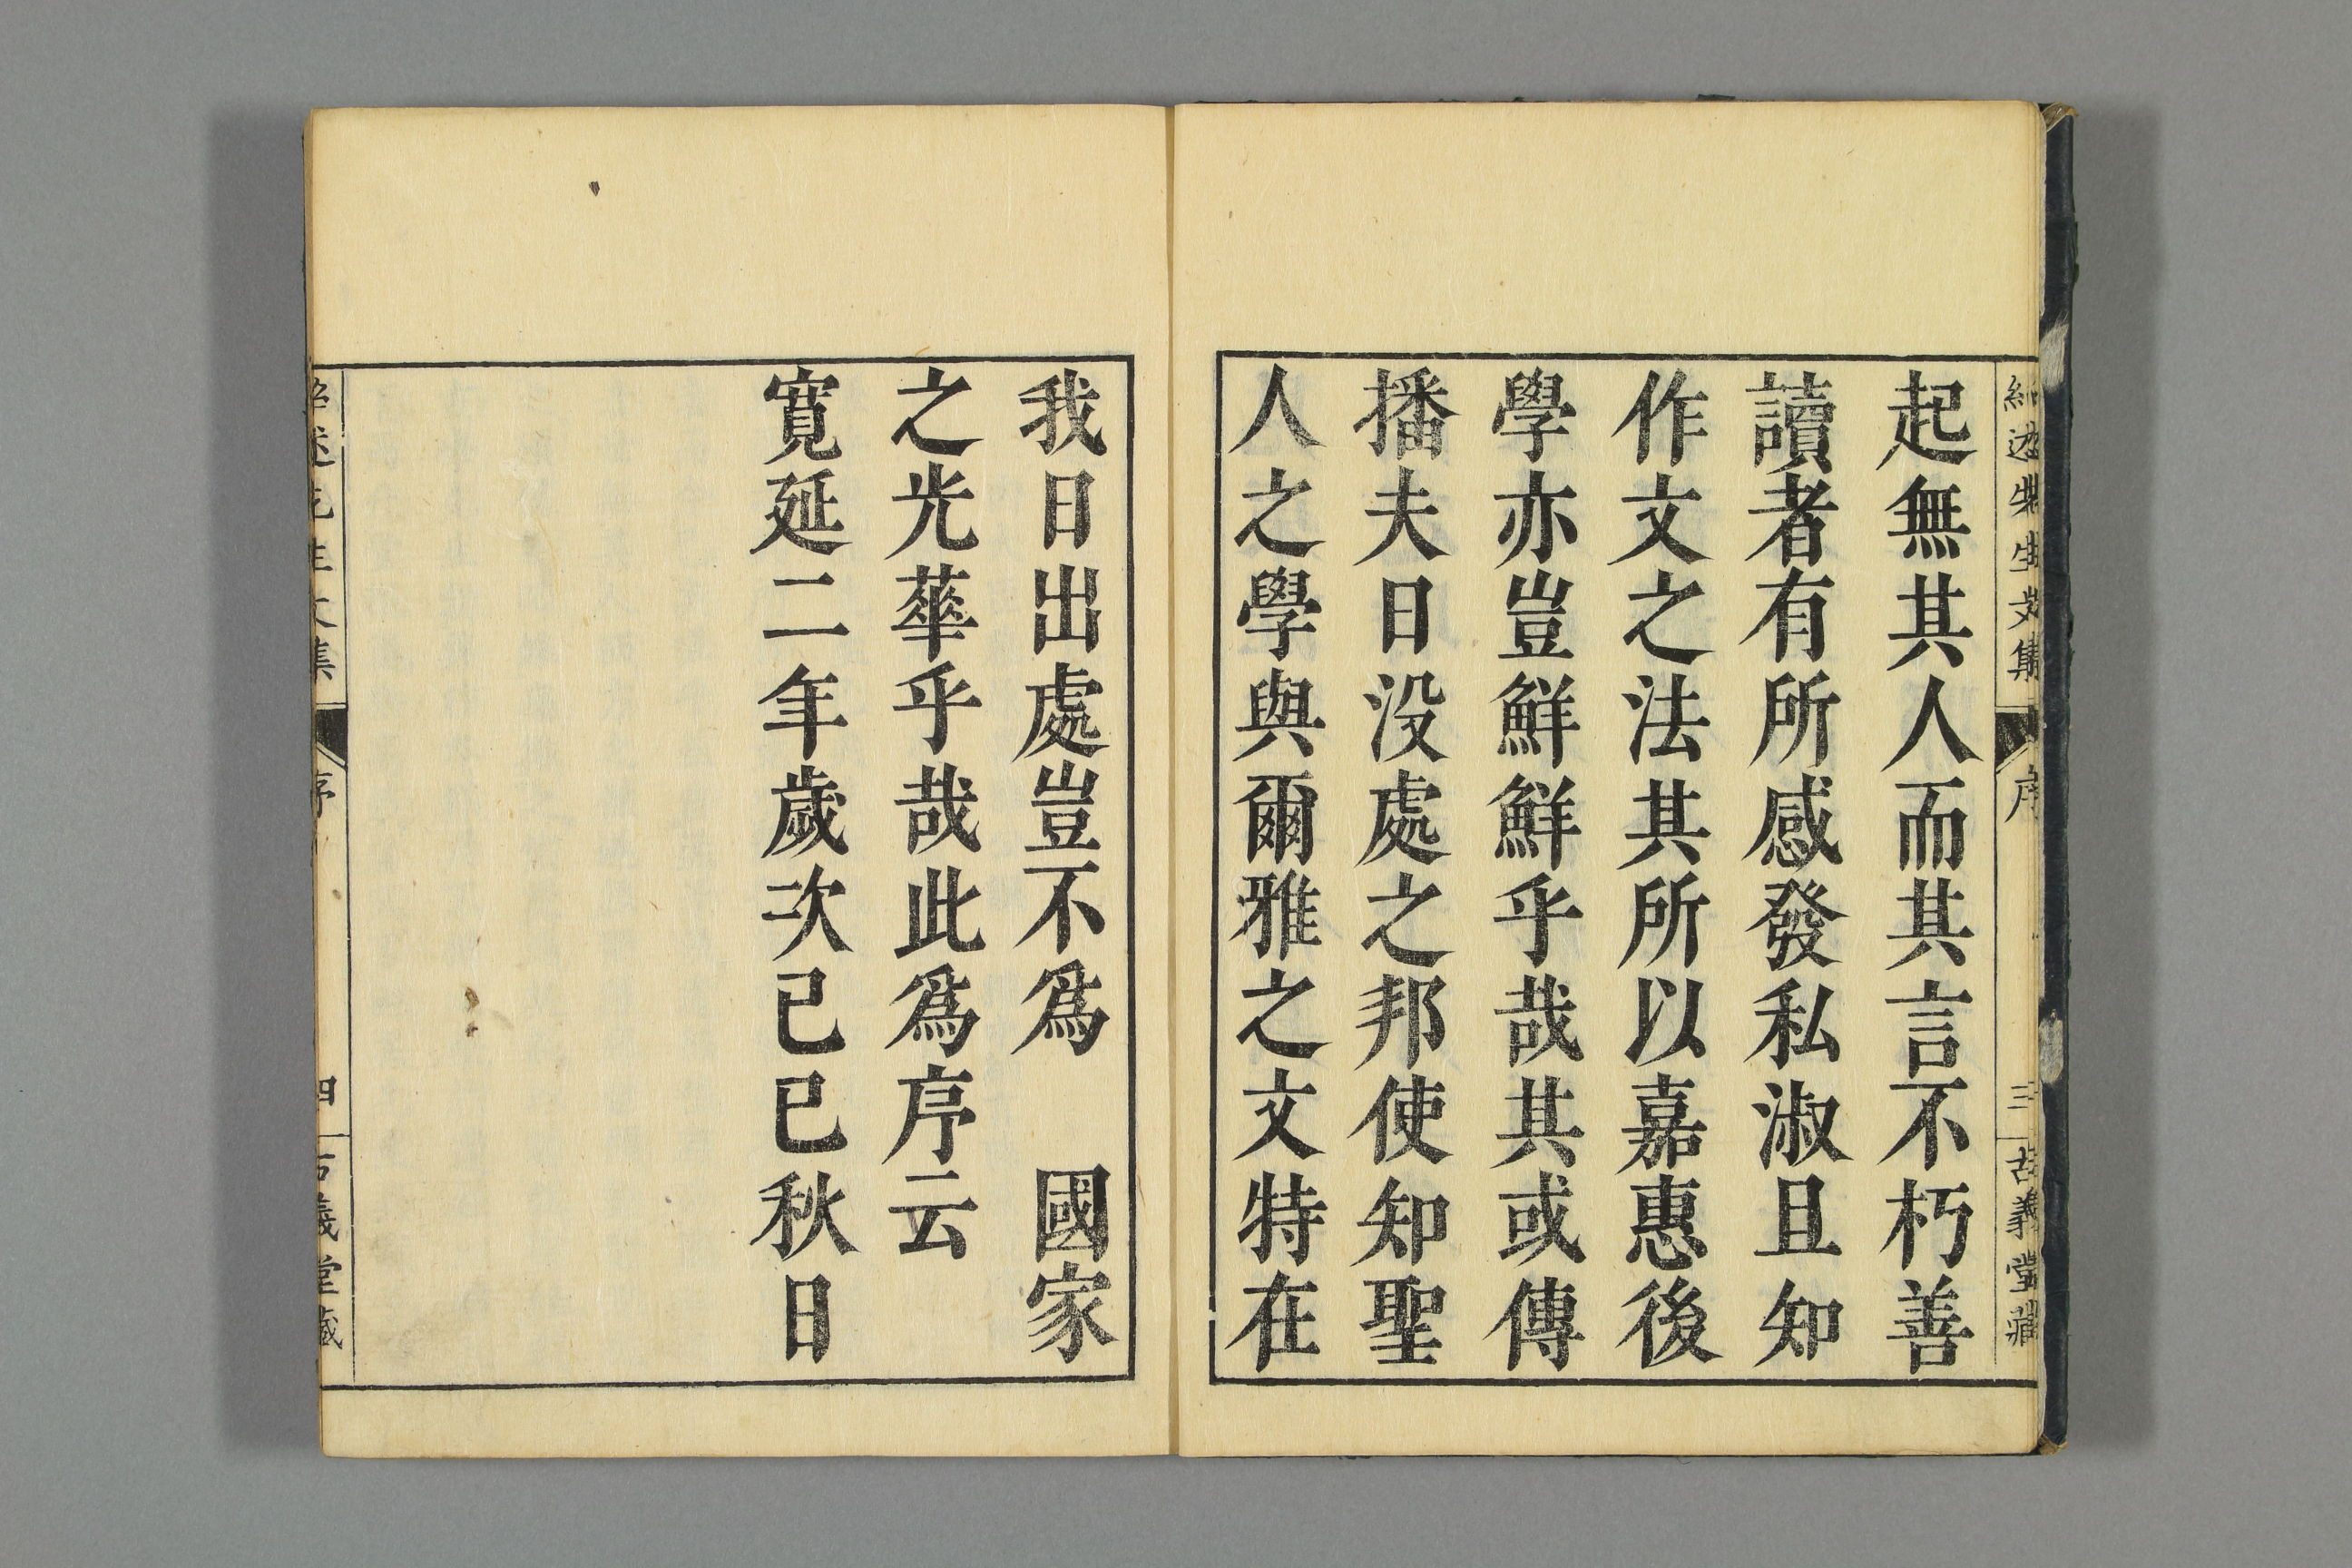 紹述先生文集 序 三 古義堂藏
起無其人而其言不朽善
讀者有所感發私淑且知
作文之法其所以嘉惠後
學亦豈鮮鮮乎哉其或傳
播夫日没處之邦使知聖
人之學與爾雅之文特在
我日出處豈不爲 國家
之光華乎哉此爲序云
寛延二年歲次己巳秋日
紹述先生文集 序 四 古義堂藏